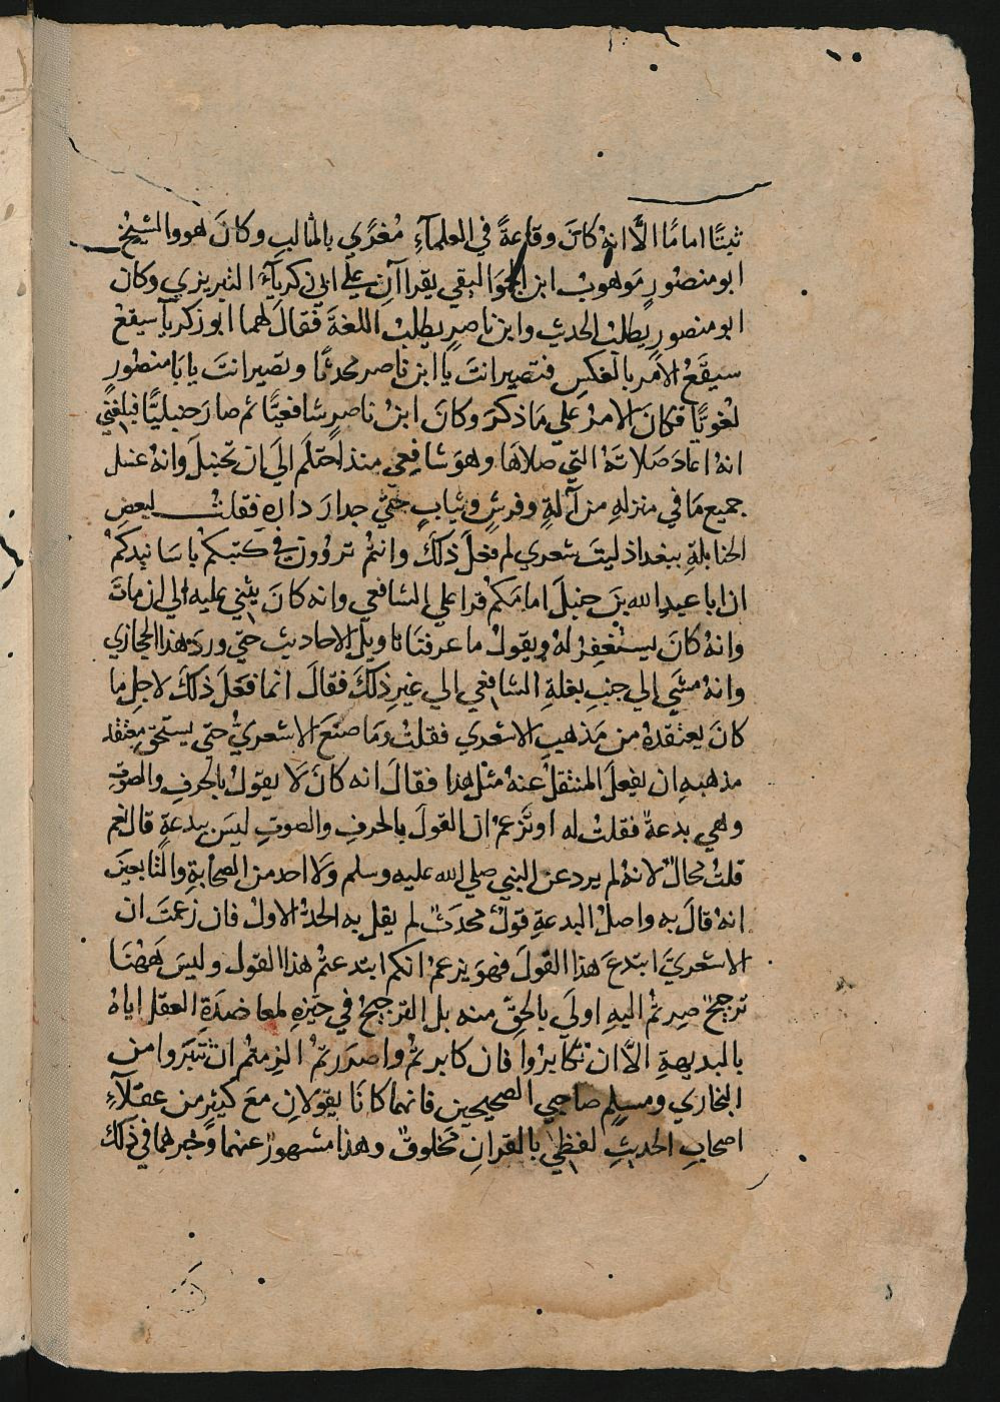 ثبتًا امامًا الّا انه كانَ وقاعةً في العلمآءِ مُغرًي بالمثالبِ وكانَ هو والشيخُ
ابو منصورٍ مَوهوبُ ابن الجوَاليقي يقراآنِ علي ابي زكريآءَ التبريزي وكان
ابو منصورٍ يطلبُ الحديثَ وابن ناصرٍ يطلبُ اللغةَ فقالَ لهما ابو زكريآ سيقعُ
سيقَعُ الامرُ بالعكسِ فتصير انتَ يا ابن ناصر محدثًا وتصير انتَ يابَا منصورٍ
لغويًّا فكانَ الامرُ علي مَا ذكرَ وكانَ ابنُ ناصرٍ شافعيًّا ثم صارَ حنبليًّا فبلغني
انهُ اعادَ صَلاتهُ التي صلاهَا وهوَ شافعي منذ احتلمَ الي ان تحنبلَ وانه غسل
جميع مَا في منزلهِ من آلةٍ وفرشٍ وثيابٍ حتي جدارَ دارهِ فقلتُ لبعضِ
الحنابلةِ ببغداذ ليتَ شعري لم فعلَ ذلكَ وانتمُ تروُونَ في كتبكم باسَانيدكمُ
ان ابا عبدِ الله بنَ حنبلَ امامَكمُ قرا علي الشافعي وانه كانَ يثني عليه الي ان ماتَ
وانهُ كانَ يستغفِرُ لهُ ويقولُ ما عرفنَا تاويلَ الاحاديث حتي وردَ هذا الحجازي
وانهُ مشَي الي جنبِ بغلةِ الشافعي الي غيرِ ذلكَ فقالَ انما فعَلَ ذلكَ لاجلِ ما
كانَ يعتقدهُ من مَذهبِ الاشعري فقلتُ ومَا صنعَ الاشعريُّ حتي يستحقَّ معتقد
مذهبهِ ان يفعلَ المنتقلُ عنهُ مثلَ هذا فقالَ انه كانَ لَا يقولُ بالحرفِ والصوتِ
وهي بدعةٌ فقلتُ له اوتزعمُ ان القولَ بالحرفِ والصوتِ ليسَ ببدعةٍ قال نعم
قلتُ محالٌ لانهُ لم يرد عن النبي صلي الله عليه وسلم وَلا احد من الصحابةِ والتابعينَ
انهُ قالَ به واصلُ البدعةِ قولٌ محدَثٌ لم يقل به الحدثُ الاولُ فان زعمتَ ان
الاشعريَّ ابتدعَ هذا القولَ فهوَ يزعمُ انكم ابتدعتُم هذا القول وليسَ هَهُنَا
ترجيحٌ صِرتمُ اليهِ اولَي بالحقِّ منه بل الترجيحُ في حيّزهِ لمعاضدَةِ العقلِ اياهُ
بالبديهةِ الّا ان تكابرُوا فان كابرتمُ واصرَرتمُ الزمتُم ان تتبرّوا من
البخاري ومسلمٍ صاحبي الصحيحين فانهما كانَا يقولانِ معَ كثيرٍ من عقلآءِ
اصحابِ الحديثِ لفظي بالقرانِ مخلوقٌ وهذا مشهورٌ عنهما وخبرهما في ذلك